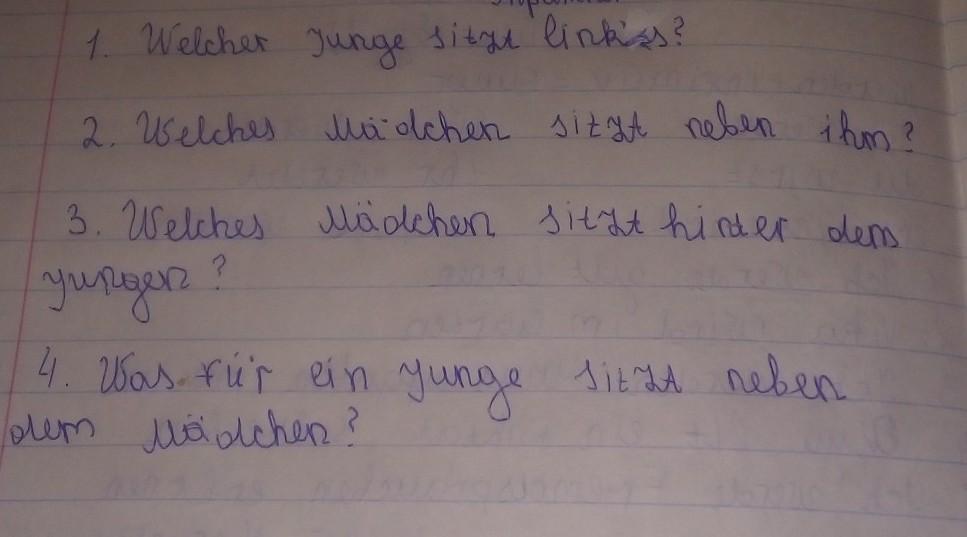 1. Welcher Junge sitzt links?
2. Welches Mädchen sitzt neben ihm?
3. Welches Mädchen sitzt hinter dem
Jungen?
4. Was für ein Junge sitzt neben
dem Mädchen?